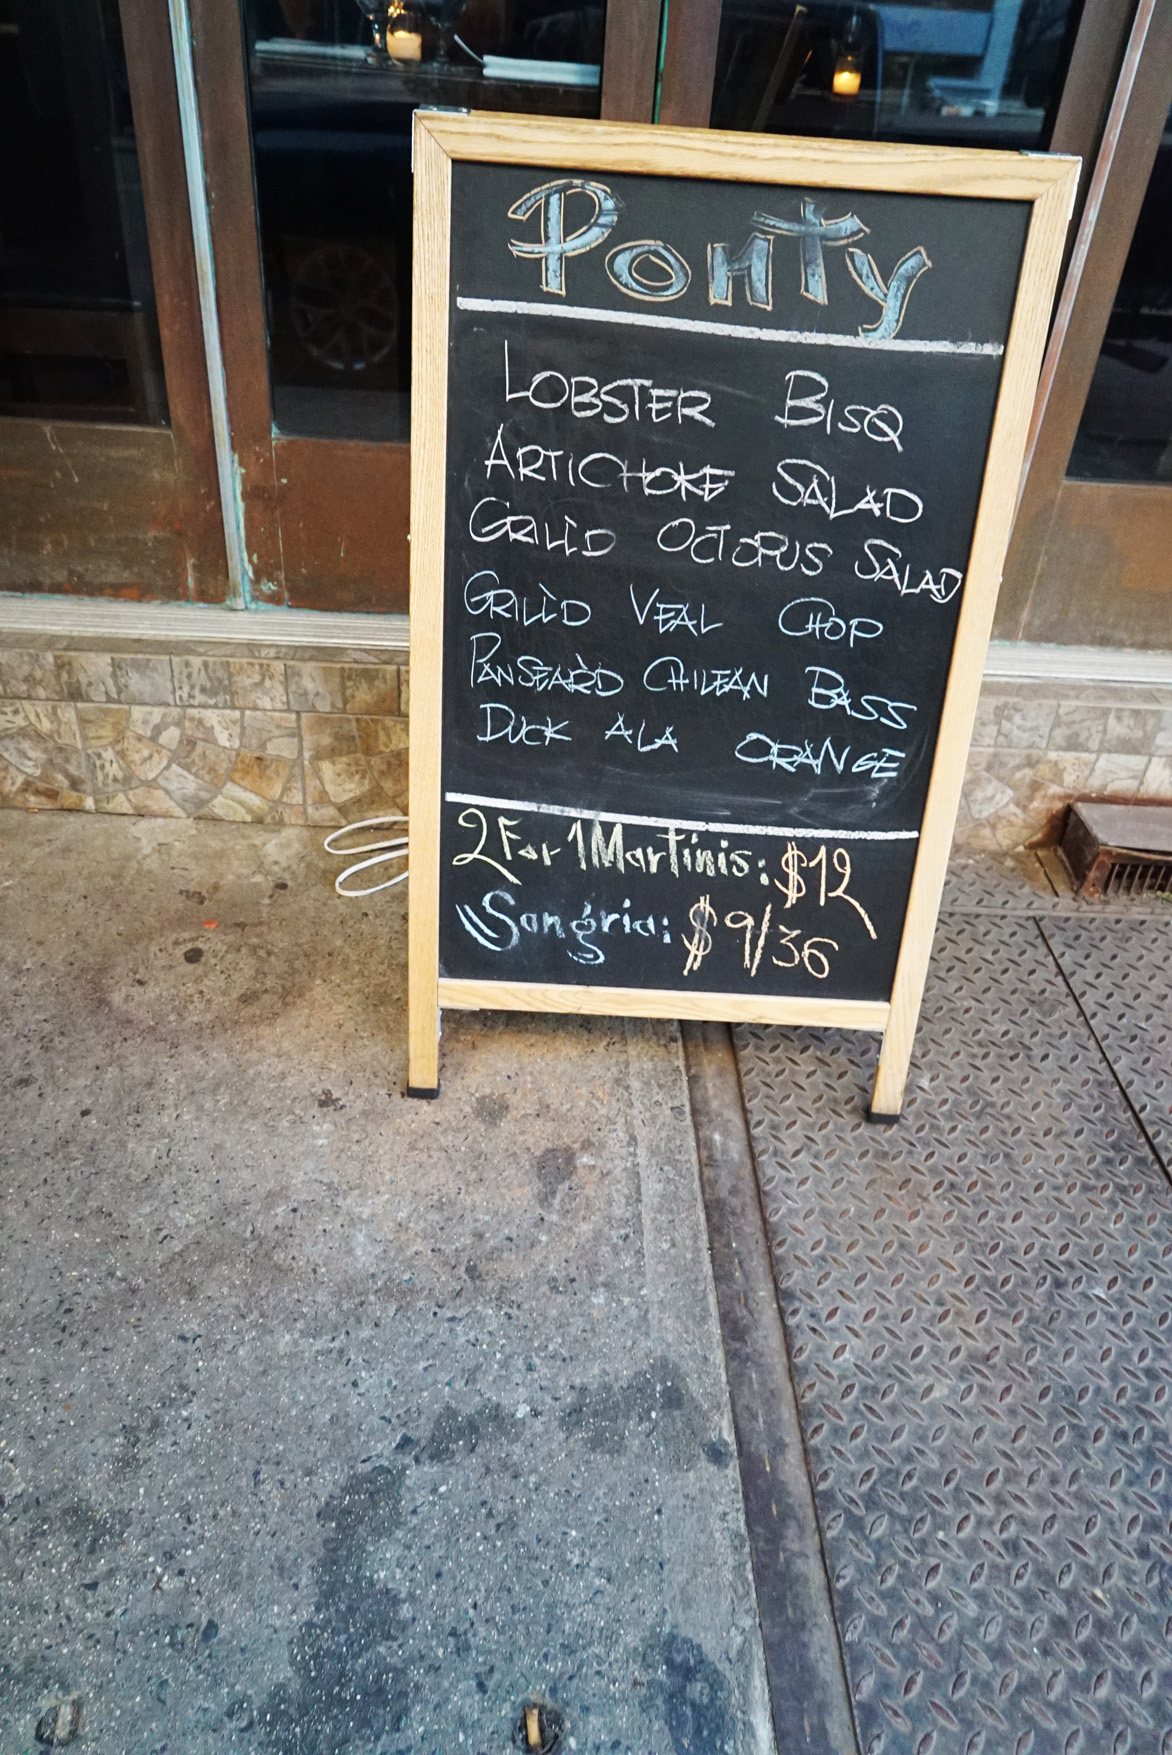 Ponty
LOBSTER BISQ
ARTICHOKE SALAD
GRILL'D OCTOPUS SALAD
GRILL'D VEAL CHOP
PANSEAR'D CHILEAN BASS
DUCK ALA ORANGE
2 For 1 Martinis: $12
Sangria: $9/36